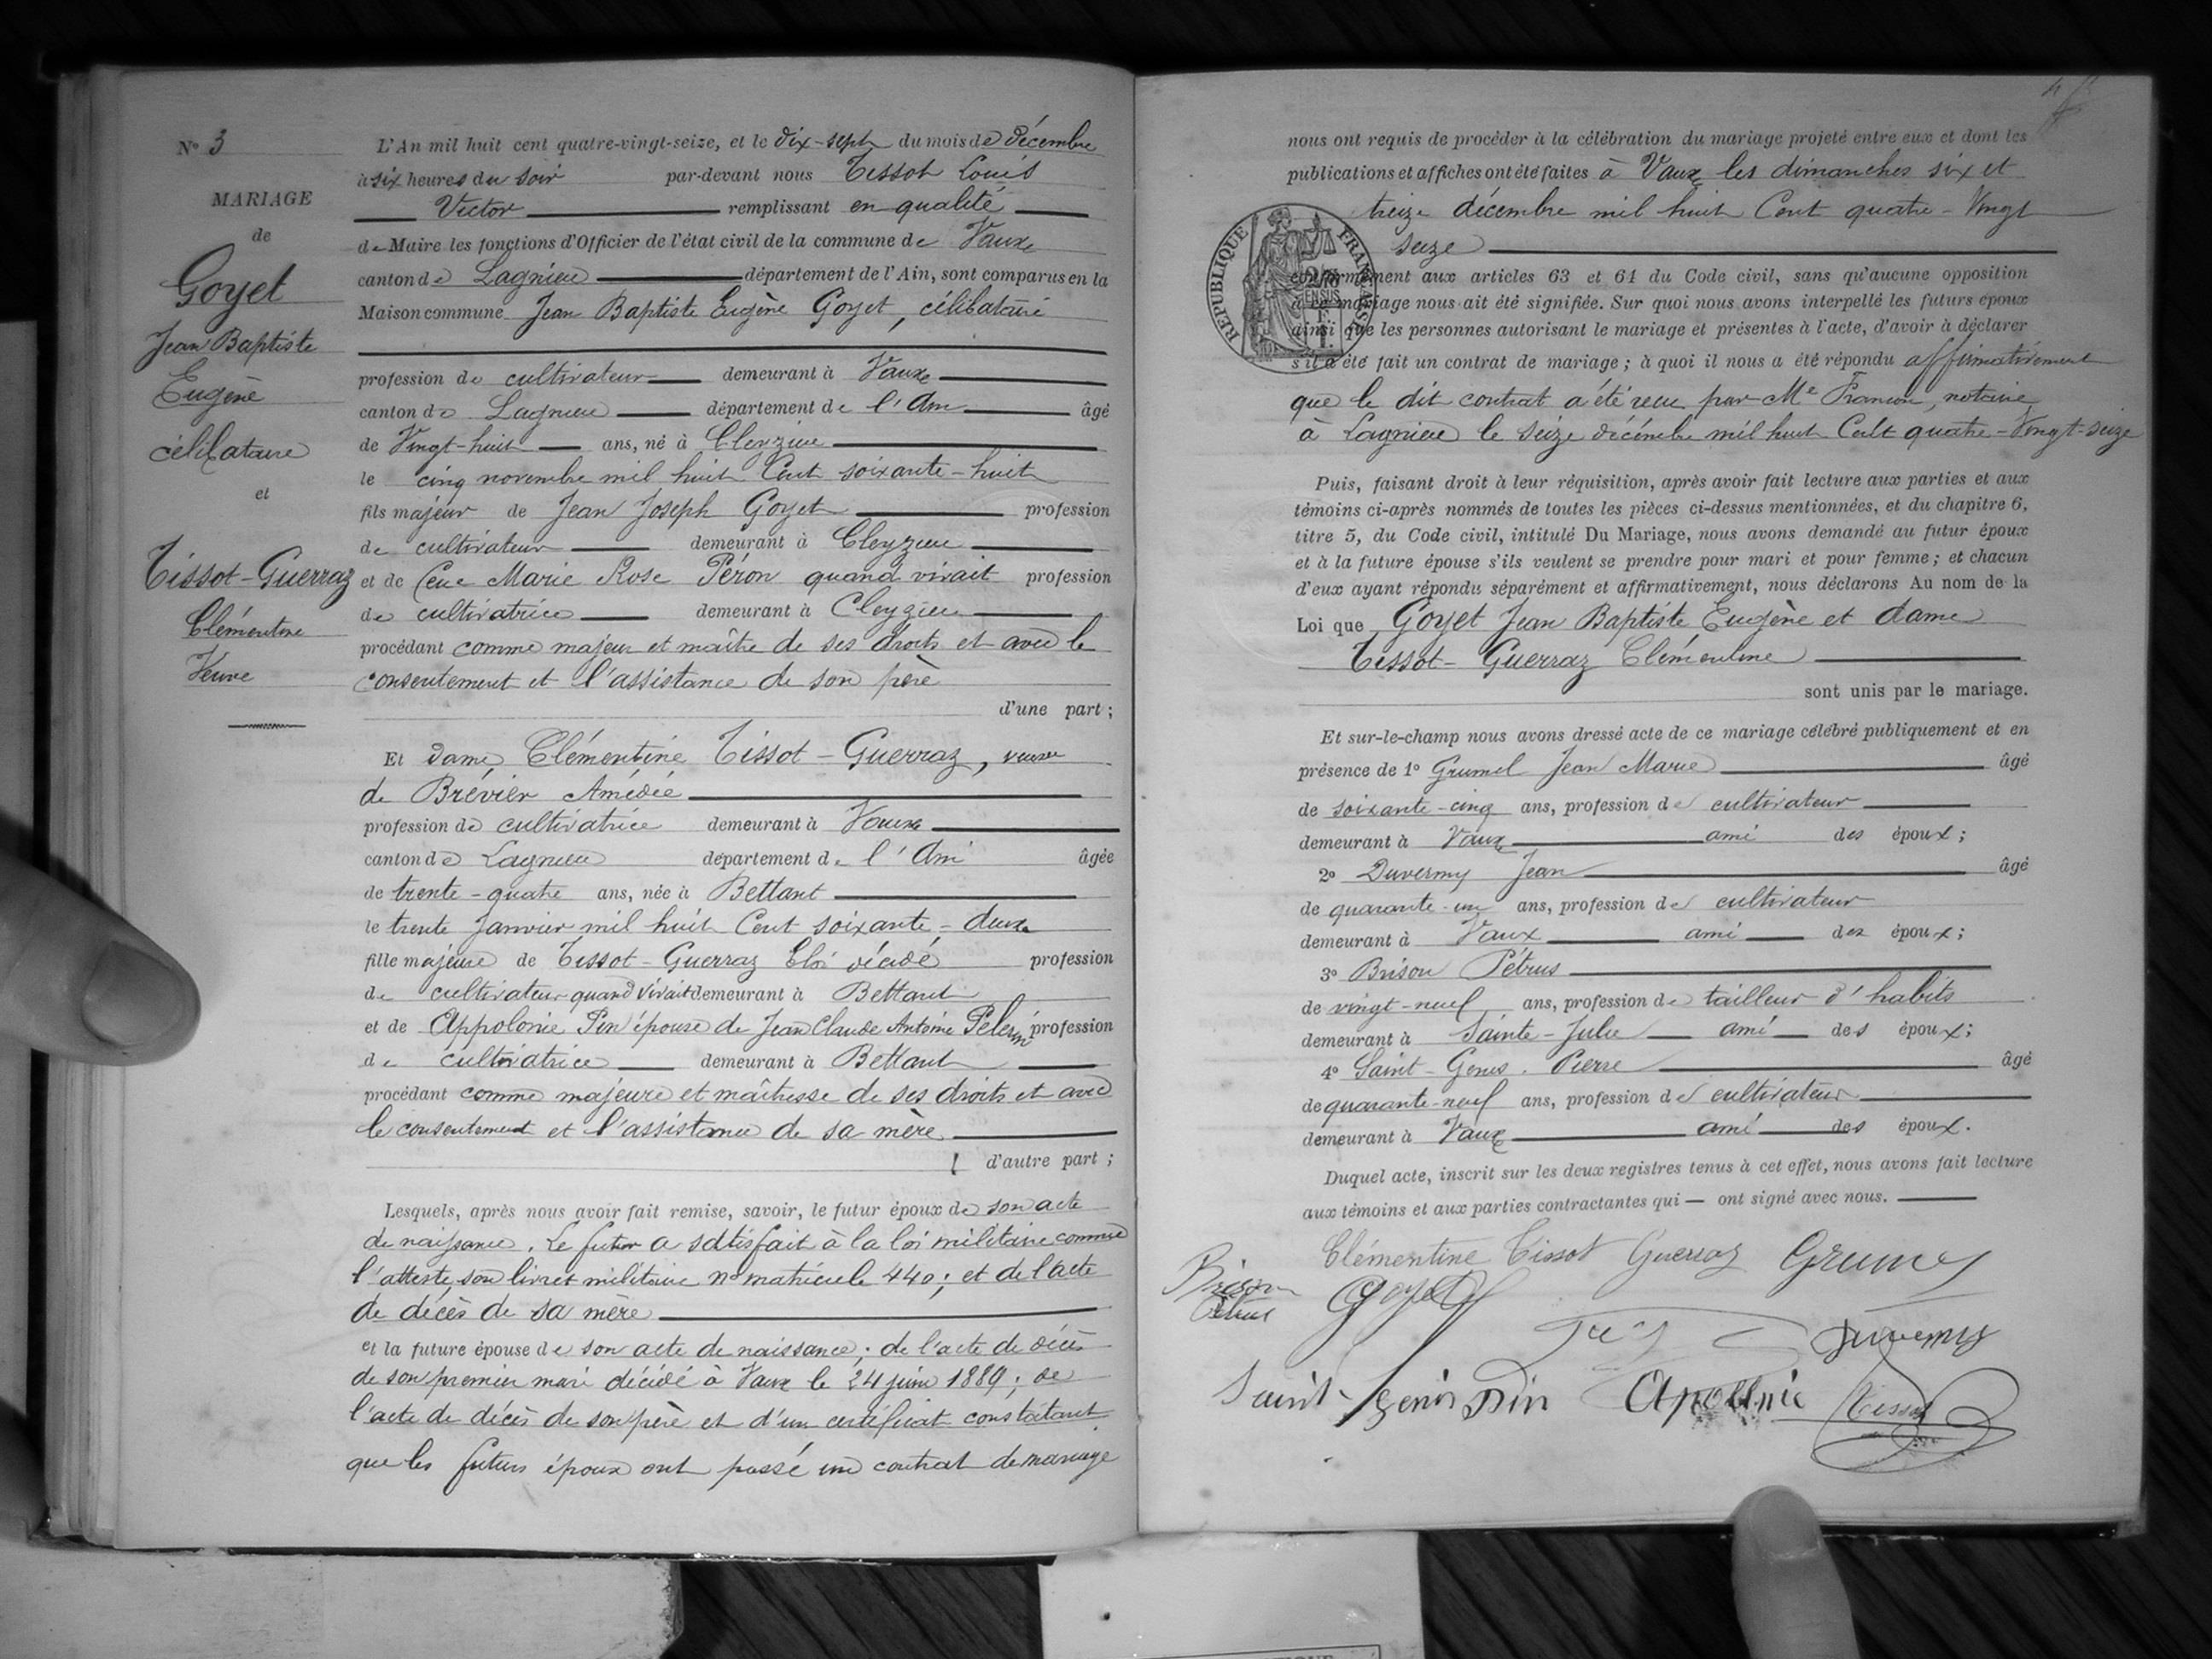 N° 3
MARIAGE
de
Goyet
Jean Baptiste
Eugène
célibataire
et
Tissot-Guerraz
Clémentine
Veuve
L'An mil huit cent quatre-vingt-seize, et le dix-sept du mois de décembre
à six heures du soir par-devant nous Tissot Louis
Victor remplissant en qualité
de Maire les fonctions d'Officier de l'état civil de la commune de Vaux
canton de Lagnieu département de l'Ain, sont comparus en la
Maison commune Jean Baptiste Eugène Goyet, célibataire
profession de cultivateur demeurant à Vaux
canton de Lagnieu département de l'Ain âgé
de Vingt-huit ans, né à Cleyzieu
le cinq novembre mil huit Cent soixante-huit
fils majeur de Jean Joseph Goyet profession
de cultivateur demeurant à Cleyzieu
et de feue Marie Rose Péron quand vivait profession
de cultivatrice demeurant à Cleyzieu
procédant comme majeur et maître de ses droits et avec le
consentement et l'assistance de son père
d'une part ;
Et dame Clémentine Tissot-Guerraz, veuve
de Brévier Amédée
profession de cultivatrice demeurant à Vaux
canton de Lagnieu département de l'Ain âgée
de trente-quatre ans, née à Bettant
le trente Janvier mil huit Cent soixante-deux
fille majeure de Tissot-Guerraz Eloi décédé profession
de cultivateur quand vivait demeurant à Bettant
et de Appolonie Pin épouse de Jean Claude Antoine Pélerin profession
de cultivatrice demeurant à Bettant
procédant comme majeure et maîtresse de ses droits et avec
le consentement et l'assistance de sa mère
d'autre part ;
Lesquels, après nous avoir fait remise, savoir, le futur époux de son acte
de naissance. Le futur a satisfait à la loi militaire comme
l'atteste son livret militaire n° matricule 440 ; et de l'acte
de décès de sa mère
et la future épouse de son acte de naissance ; de l'acte de décès
de son premier mari décédé à Vaux le 24 juin 1889 ; de
l'acte de décès de son père et d'un certificat constatant
que les futurs époux ont passé un contrat de mariage
nous ont requis de procéder à la célébration du mariage projeté entre eux et dont les
publications et affiches ont été faites à Vaux les dimanches six et
treize décembre mil huit Cent quatre-Vingt
seize
RÉPUBLIQUE FRANÇAISE
conformément aux articles 63 et 64 du Code civil, sans qu'aucune opposition
à ce mariage nous ait été signifiée. Sur quoi nous avons interpellé les futurs époux
ainsi que les personnes autorisant le mariage et présentes à l'acte, d'avoir à déclarer
s'il a été fait un contrat de mariage ; à quoi il nous a été répondu affirmativement
que le dit contrat a été reçu par Me notaire
à Lagnieu le seize décembre mil huit Cent quatre-Vingt-seize
Puis, faisant droit à leur réquisition, après avoir fait lecture aux parties et aux
témoins ci-après nommés de toutes les pièces ci-dessus mentionnées, et du chapitre 6,
titre 5, du Code civil, intitulé Du Mariage, nous avons demandé au futur époux
et à la future épouse s'ils veulent se prendre pour mari et pour femme ; et chacun
d'eux ayant répondu séparément et affirmativement, nous déclarons Au nom de la
Loi que Goyet Jean Baptiste Eugène et dame
Tissot-Guerraz Clémentine
sont unis par le mariage.
Et sur-le-champ nous avons dressé acte de ce mariage célébré publiquement et en
présence de 1° Grumel Jean Marie âgé
de soixante-cinq ans, profession de cultivateur
demeurant à Vaux ami des époux ;
2° Duvermy Jean âgé
de quarante-un ans, profession de cultivateur
demeurant à Vaux ami des époux ;
3° Brison Pétrus
de vingt-neuf ans, profession de tailleur d'habits
demeurant à Sainte-Julie ami des époux ;
4° Saint-Genis Pierre âgé
de quarante-neuf ans, profession de cultivateur
demeurant à Vaux ami des époux.
Duquel acte, inscrit sur les deux registres tenus à cet effet, nous avons fait lecture
aux témoins et aux parties contractantes qui — ont signé avec nous.
Clémentine Tissot Guerraz Grumel
Brison Pétrus Goyet
Duvermy
Saint-Genis Pin Apollnie Tissot